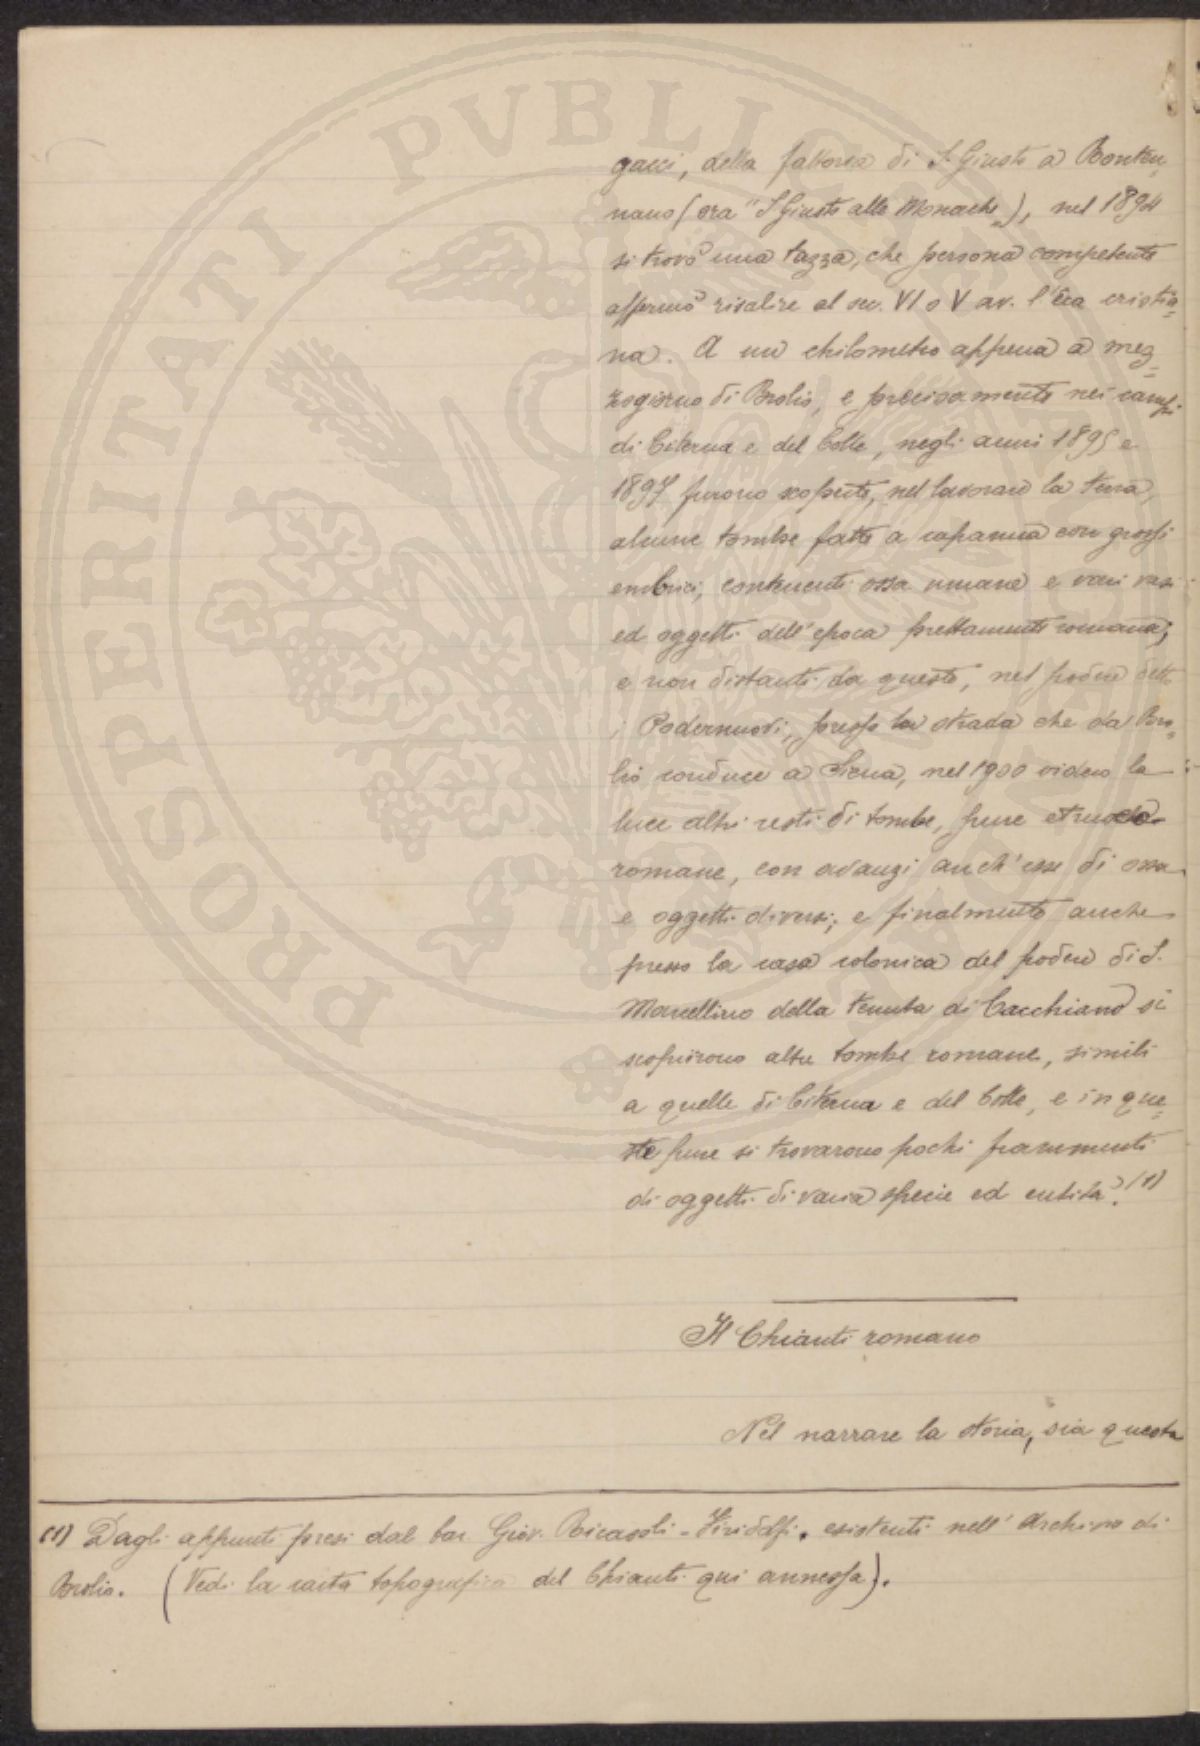 gacci, della fattoria di S. Giusto a Renten,
nano (ora "S Giusto alle Monache„), nel 1894
si trovò una tazza, che persona competente
affermò risalire al sec. VI o V av. l'Era cristia=
na. A un chilometro appena a mez=
zogiorno di Brolio, e precisamente nei campi
di Citerna e del Colle, negli anni 1895 e
1897 furono scoperte, nel lavorare la terra,
alcune tombe fatte a capanna con grossi
embrici, contenenti ossa umane e vari vasi
ed oggetti dell'epoca prettamente romana;
e non distanti da queste, nel podere detto
i Podernuovi, presso la strada che da Bro=
lio conduce a Siena, nel 1900 videro la
luce altri resti di tombe, pure etrusco-
romane, con avanzi anch'esse di ossa
e oggetti diversi; e finalmente anche
presso la casa colonica del podere di S.
Marcellino della tenuta di Cacchiano si
scoprirono altre tombe romane, simili
a quelle di Citerna e del Colle, e in que=
ste pure si trovarono pochi frammenti
di oggetti di varia specie ed entità. (1)
Il Chianti romano
Nel narrare la storia, sia questa
(1) Dagli appunti presi dal bar. Giov. Ricasoli-Firidolfi, esistenti nell'Archivio di
Brolio. (Vedi la carta topografica del Chianti qui annessa).
PROSPERITATI PVBLICAE